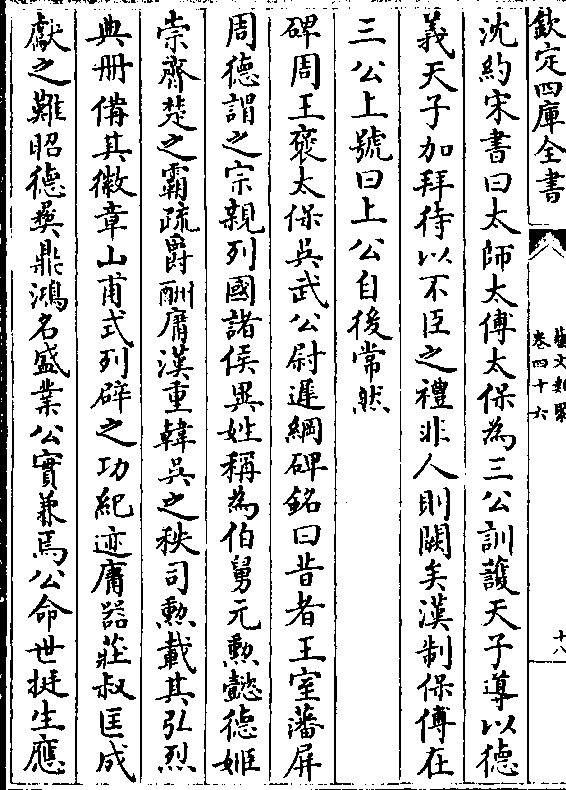 欽定四庫全書
藝文類聚
卷四十六
十八
沈約宋書曰太師太傅太保為三公訓護天子導以德
義天子加拜待以不臣之禮非人則闕矣漢制保傅在
三公上號曰上公自後常然
碑周王褒太保吳武公尉遲綱碑銘曰昔者王室藩屏
周德謂之宗親列國諸侯異姓稱為伯舅元勲懿德姬
崇齊楚之霸疏爵酬庸漢重韓吳之秩司勲載其弘烈
典册備其徽章山甫式列辟之功紀迹庸器莊叔匡成
獻之難昭德彝鼎鴻名盛業公實兼焉公命世挺生應